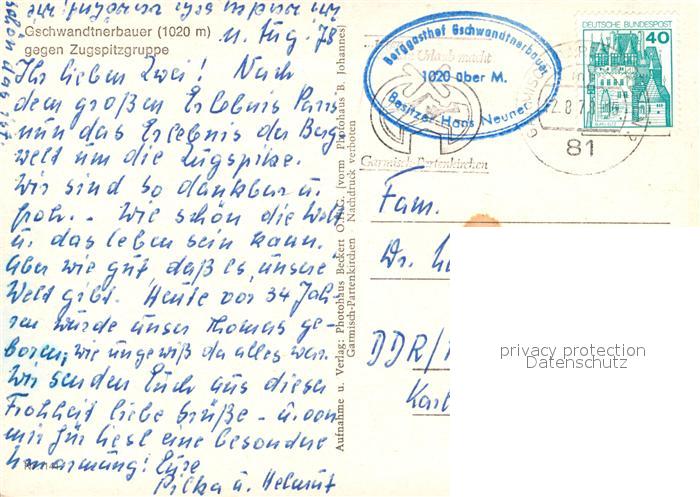 Gschwandtnerbauer (1020 m)
gegen Zugspitzgruppe
11. Aug. 78
Ihr lieben Zwei! Nach
dem großen Erlebnis Paris
nun das Erlebnis der Berg
welt um die Zugspitze.
Wir sind so dankbar u.
froh. - Wie schön die Welt
u. das Leben sein kann.
Aber wie gut, daß es unsere
Welt gibt. Heute vor 34 Jah-
ren wurde unser Thomas ge-
boren, wie ungewiß da alles war.
Wir senden Euch aus dieser
Frohheit liebe Grüße - u. von
mir für Liesl eine besondere
Umarmung! Eure
Pilka u. Helmut
schön das ist.
Aufnahme u. Verlag: Photohaus Beckert O.H.G. (vorm. Photohaus B. Johannes)
Garmisch-Partenkirchen - Nachdruck verboten
Berggasthof Gschwandtnerbauer
1020 über M.
Besitzer Hans Neuner
Urlaub macht
Garmisch-Partenkirchen
DEUTSCHE BUNDESPOST
40
81
Fam.
Dr.
DDR/
Karl
privacy protection
Datenschutz